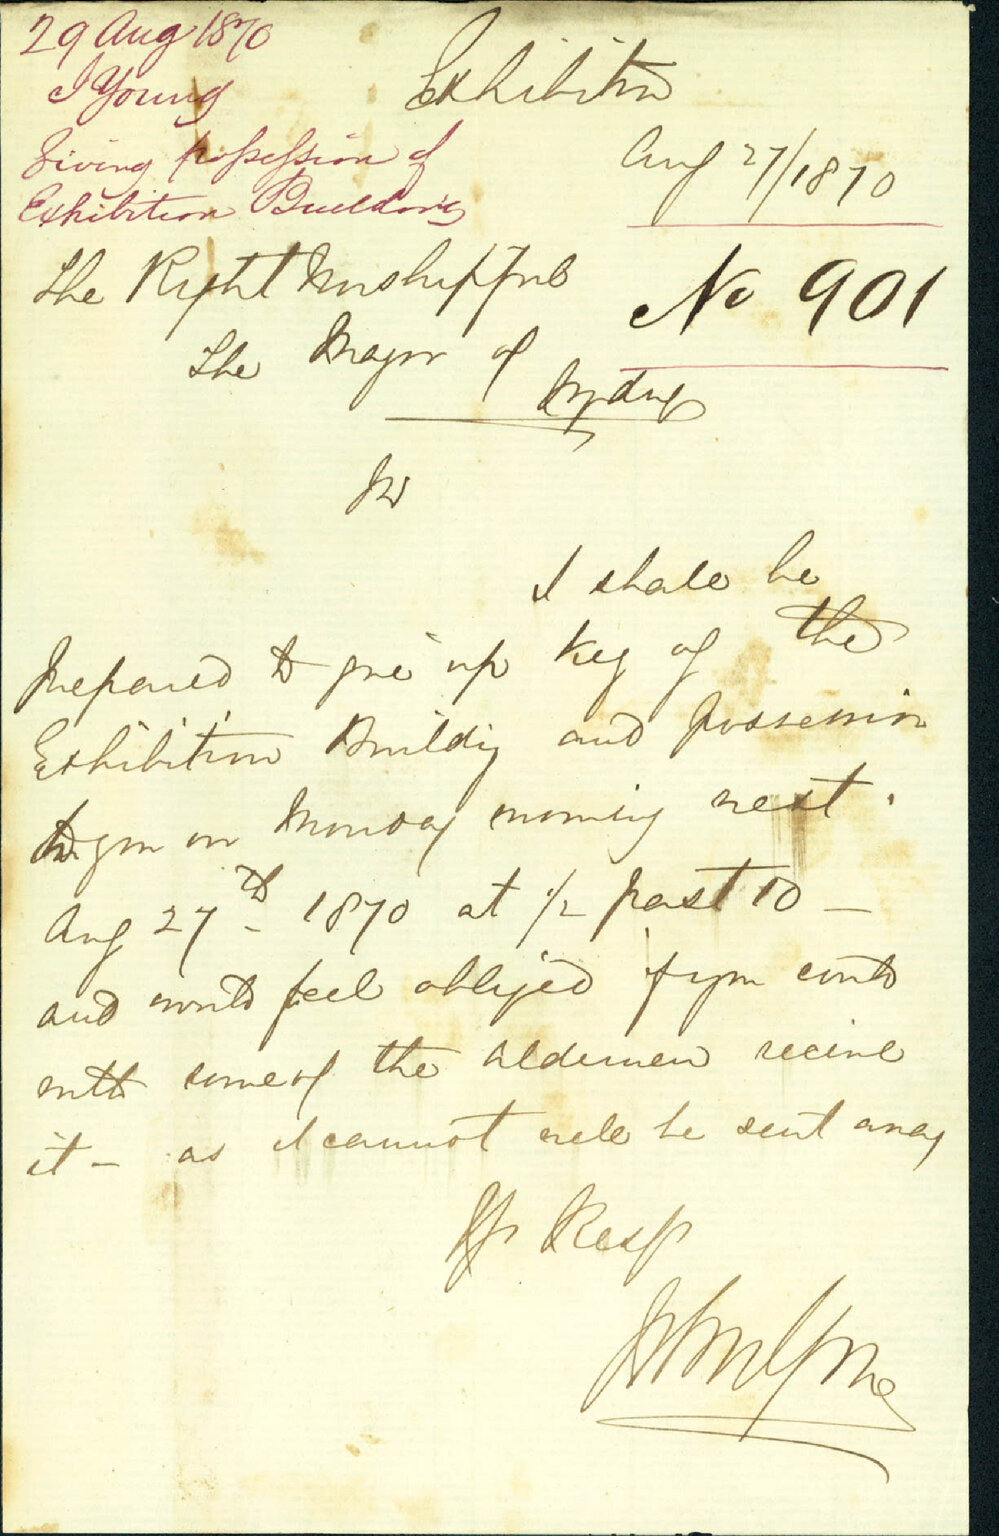 29 Aug 1870
J Young
Giving possession of
Exhibition Building
Exhibition
Aug 27/1870
No 901
The Right Worshipful
The Mayor of
Sydney
Sir
I shall be
prepared to give up key of the
Exhibition Building and possession
to you on Monday morning next.
Aug 27th 1870 at 1/2 past 10 —
and would feel obliged if you could
with some of the aldermen receive
it — as I cannot well be sent away
Yr Resp
John Young